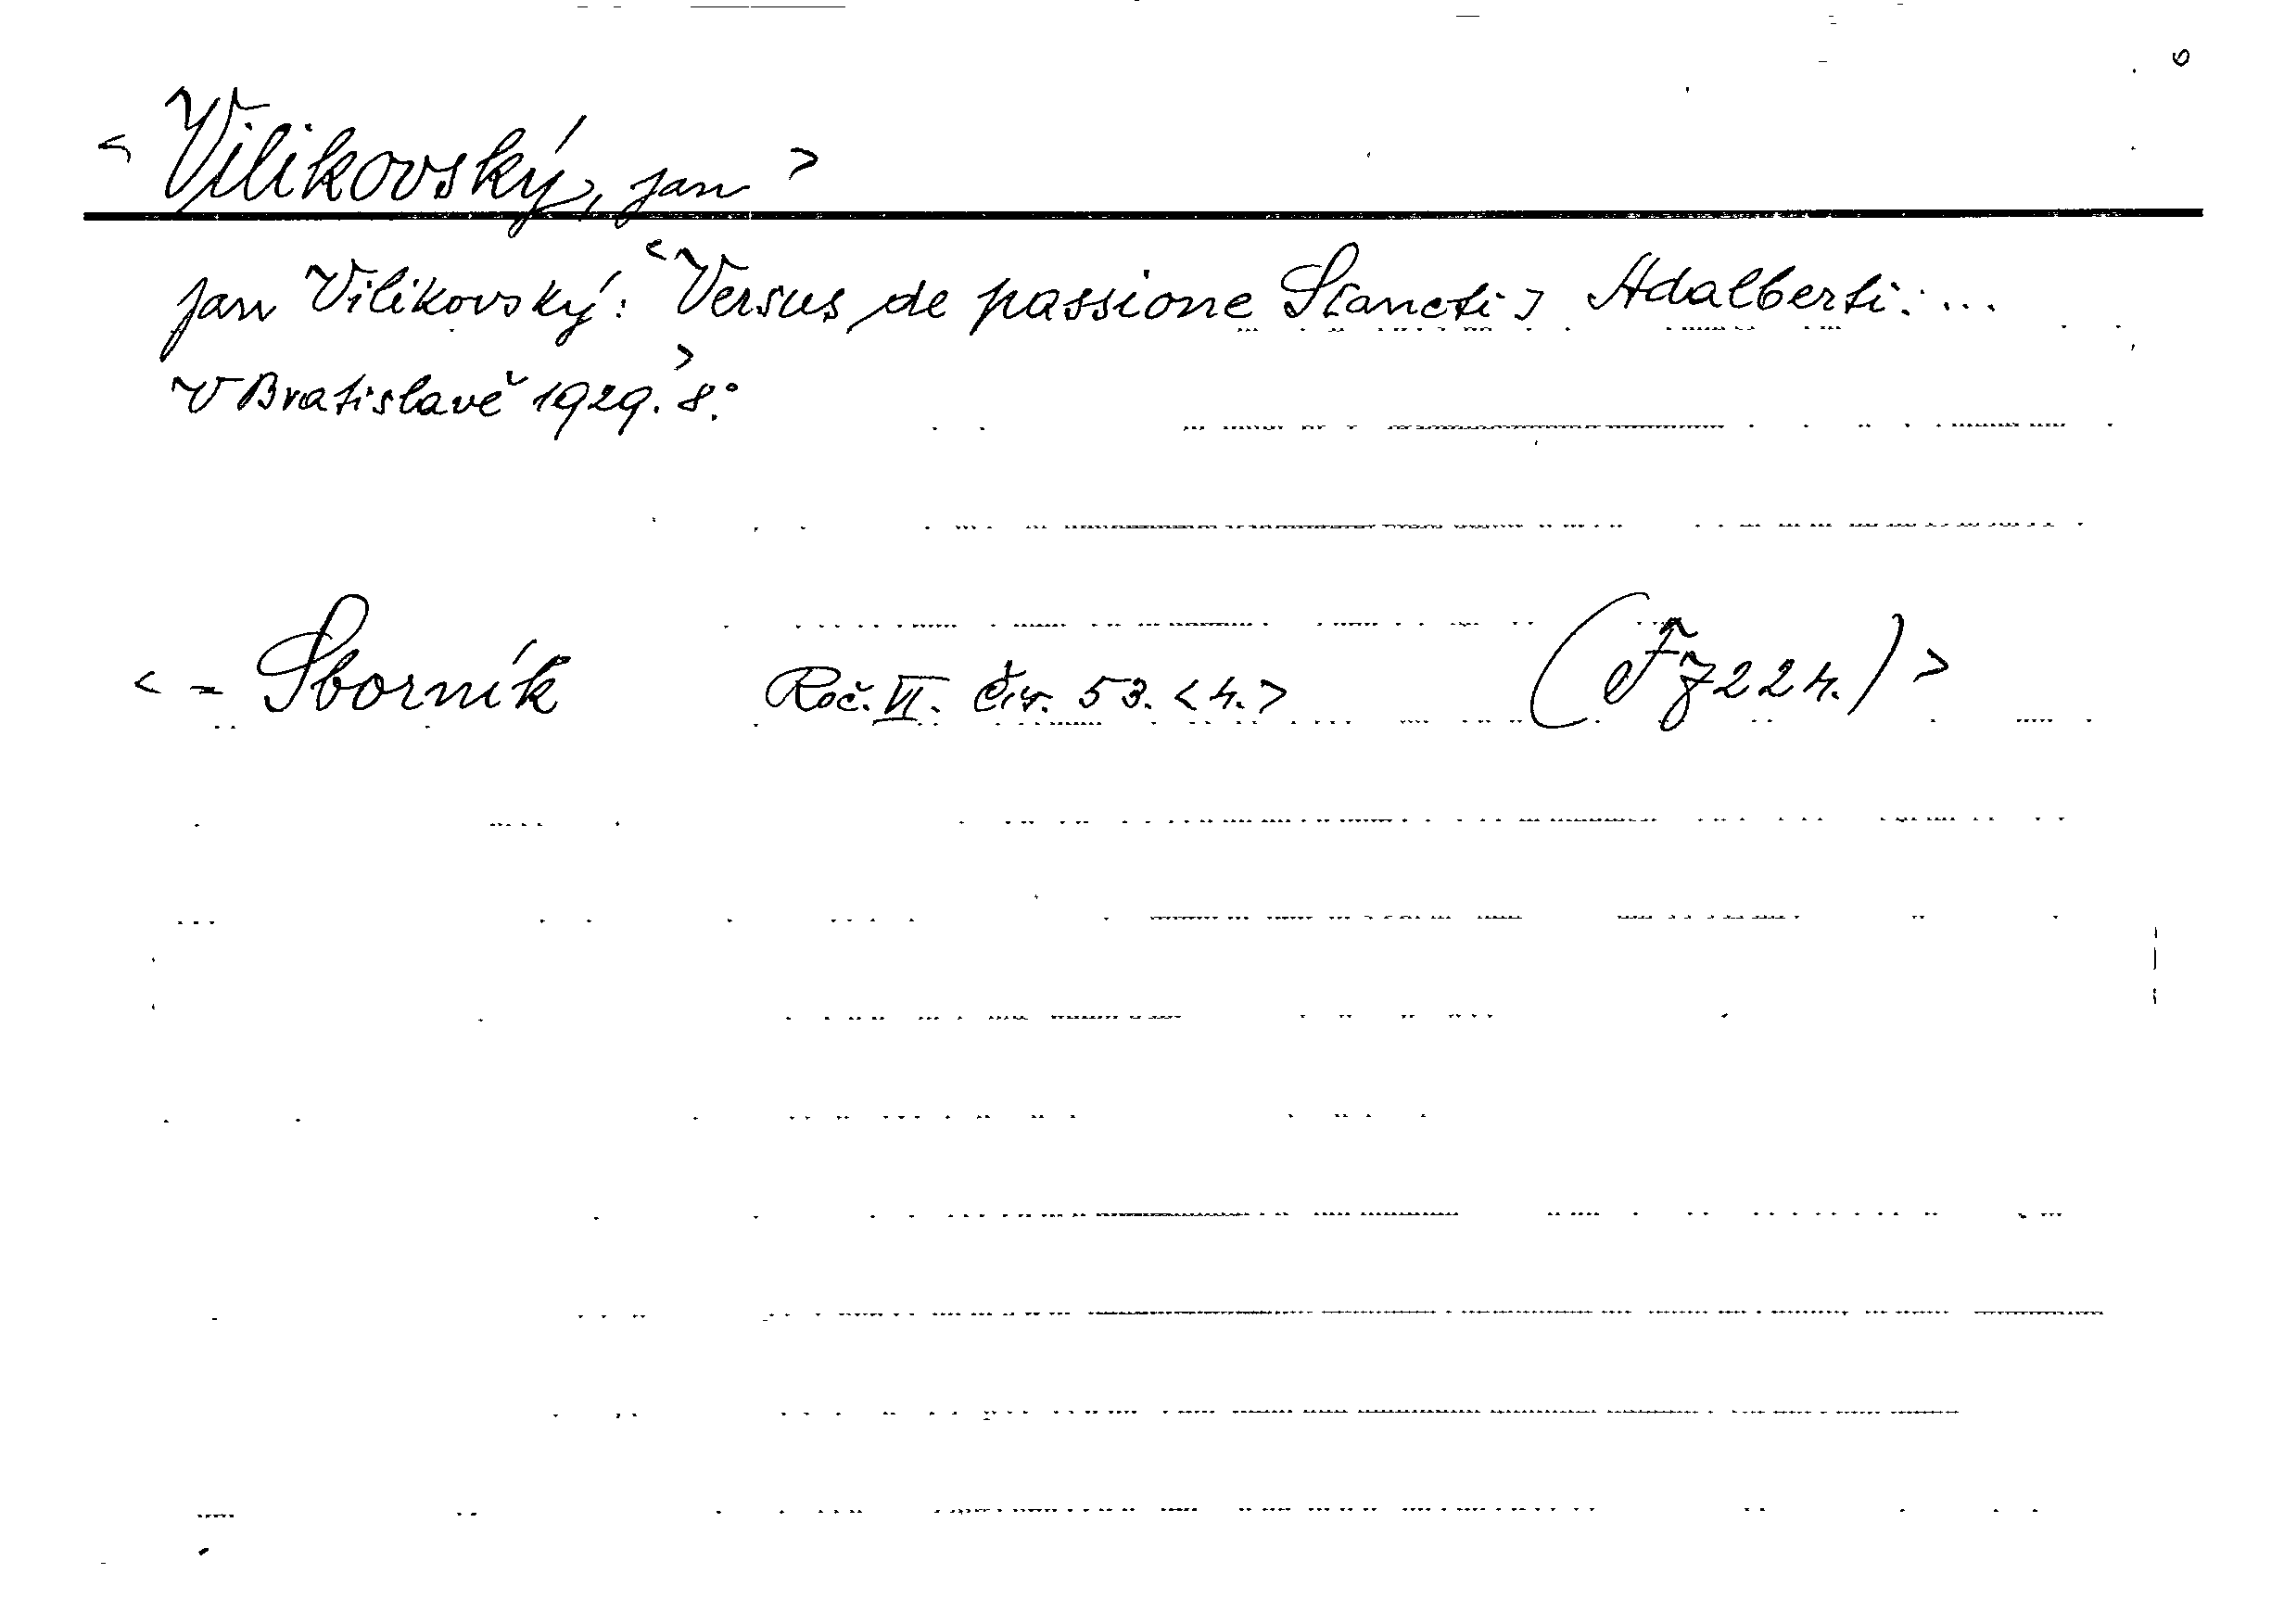 < Vilikovský, Jan >
Jan Vilikovský: < Versus de passione S[ancti] Adalberti: ...
V Bratislavě 1929. > 8°
< = Sborník Roč. VI. Čís. 53. < 4. > (Fz 224.) >